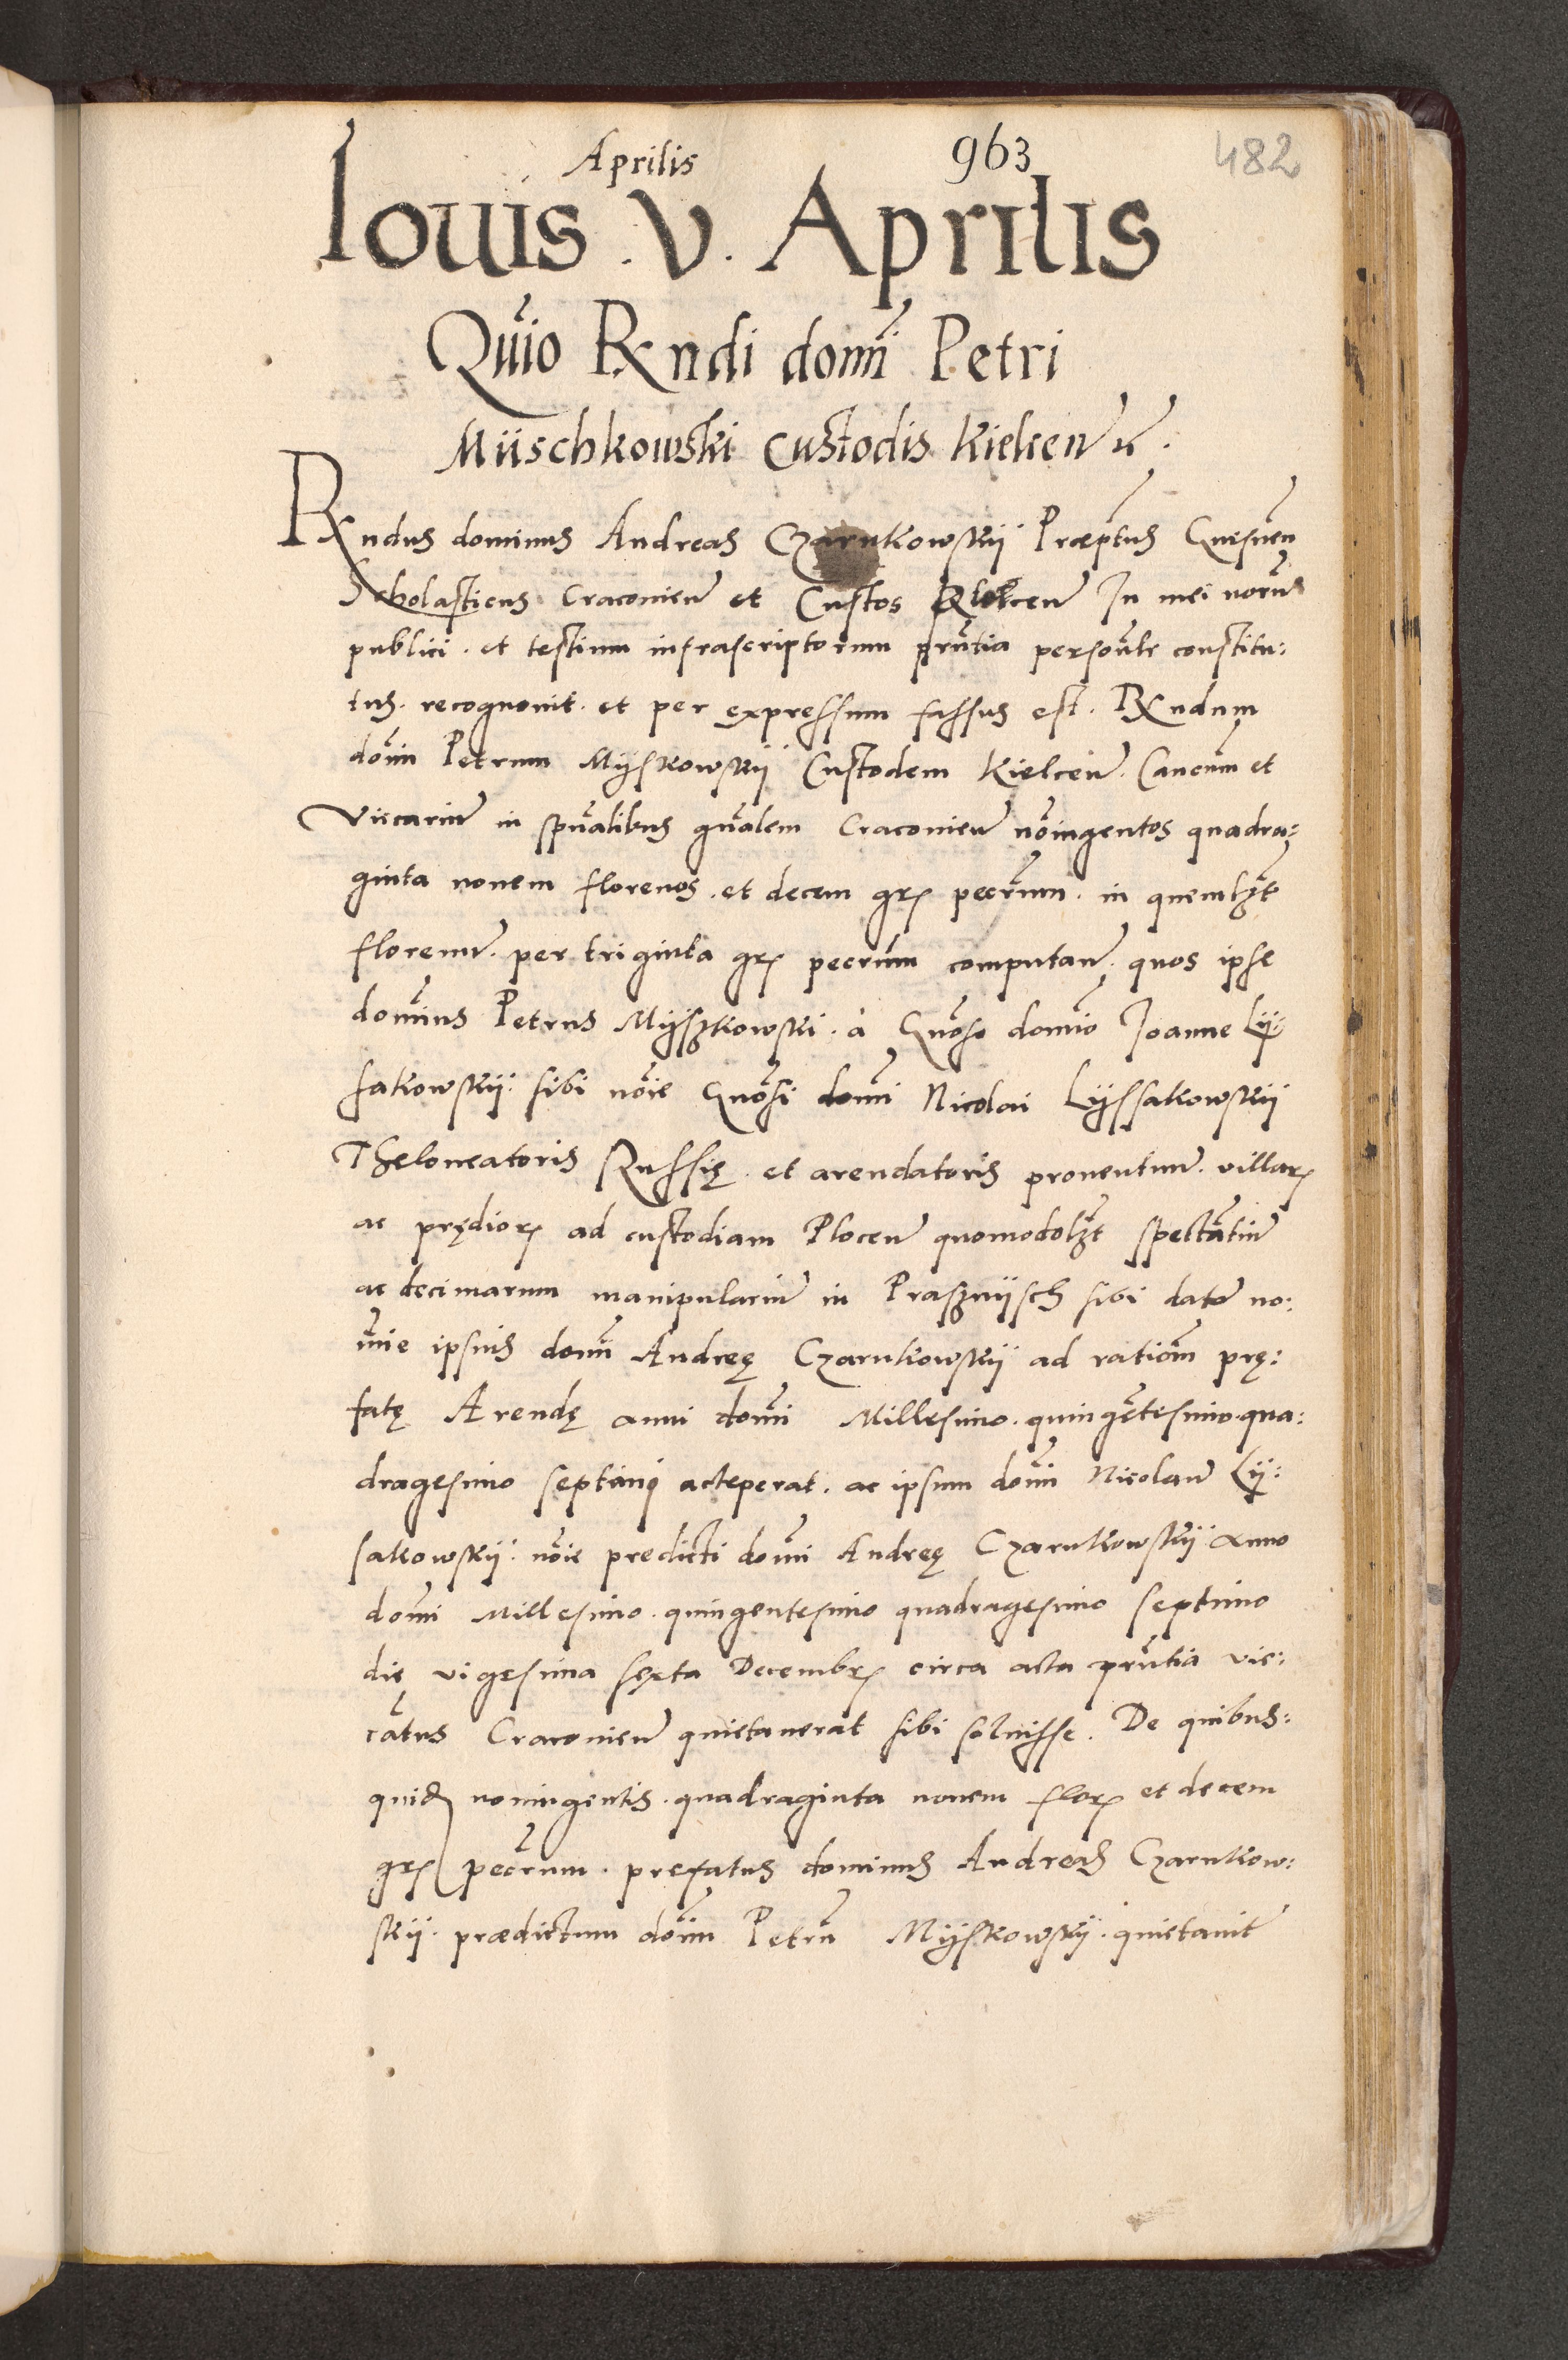 Aprilis 963 482
Iouis . V . Aprilis
Quio Rndi domi Petri
Miischkowski Custodis Kielcen
Rndus dominus Andreas Czarnkowskij Præptus Gnesnen
Scholasticus Cracouien et Custos In mei norii
publici . et testium infrascriptorum pntia personlr constitu:
tus . recognouit . et per expressum fassus est . Rndum
dom Petrum Mijskowskij Custodem Kielcen . Cancum et
Viccarium in spualibus gnalem Cracouien noingentos quadra:
ginta nouem florenos . et decem grs pecrum . in quemlzt
florenu . per triginta grs pecrum computan . quos ipse
dominus Petrus Mijszkowski . à Gnoso domio Joanne Lij:
sakowskij . sibi noie Gnosi domi Nicolai Lijssakowskij
Theloneatoris Russię . et arendatoris prouentuum . villar
ac prędior ad custodiam Plocen quomodolzt spectantiu
ac decimarum manipulariu in Praszniisch sibi dator no:
mie ipsius domi Andreę Czarnkowskij ad rationem prę:
fatę Arendę anni domi Millesimo . quingetesimo . qua:
dragesimo septimi acceperat . ac ipsum dom Nicolaum Lij:
sakowskij . noie predicti domi Andreę Czarnkowskij anno
domi Millesimo . quingentesimo quadragesimo septimo
die vigesima sexta Decembr circa acta pntia vic:
ratus Cracouien quietauerat sibi soluisse . De quibus:
quid noningentis . quadraginta nouem flor et decem
grs pecrum . prefatus dominus Andreas Czarnkow:
skij . prædictum dom Petru Mijskowskij . quietauit